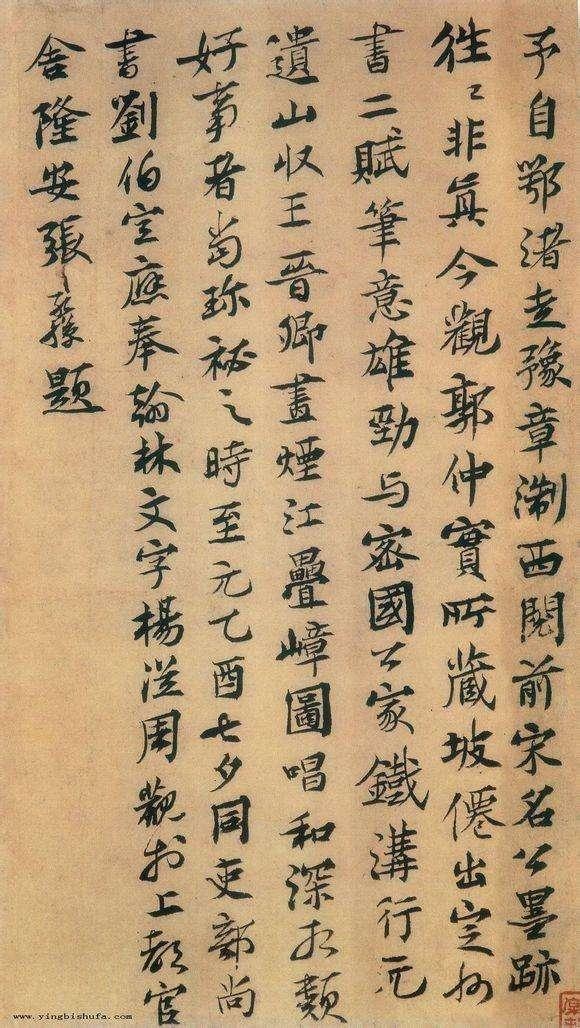 予自鄂渚走豫章淛西閱前宋名公墨跡
往〻非真今觀郭仲實所藏坡僊出定州
書二賦筆意雄勁与密國公家鐵溝行元
遺山收王晉卿畫煙江疊嶂圖唱和深相類
好事者當珎祕之時至元乙酉七夕同吏部尚
書劉伯宣應奉翰林文字楊從周觀於上都官
舍隆安張孔孫題
www.yingbishufa.com